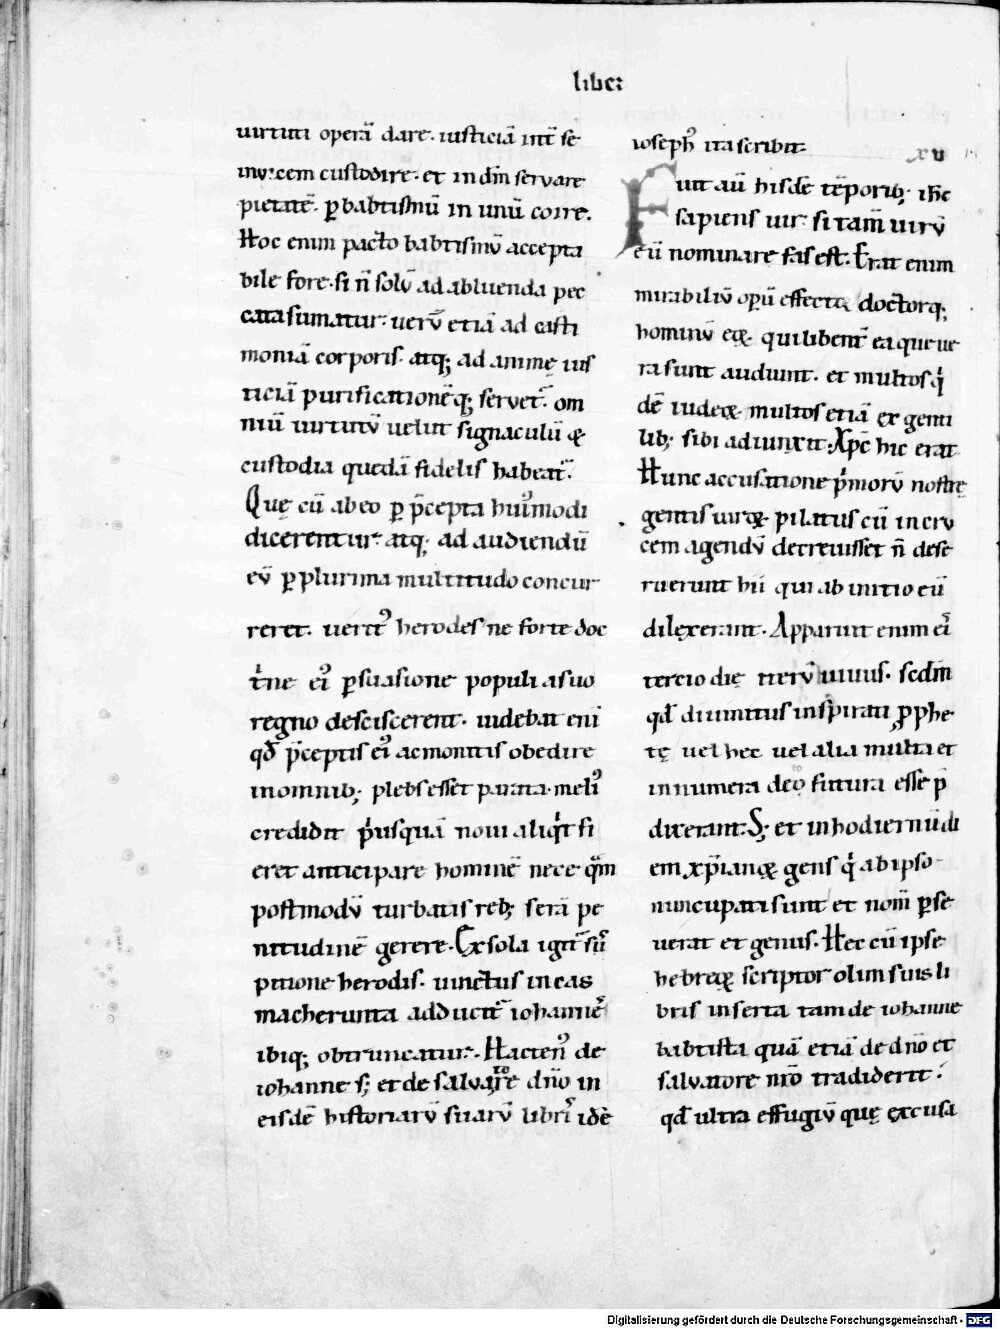 liber
uirtuti operā dare. iusticiā int̄ se
inuicem custodire. et in dm̄ seruare
pietatē. ꝑ babtismū in unū coire.
Hoc enim pacto babtismū accepta
bile fore. si n̄ solū ad abluenda pec
cata sumatur. uerū etiā ad casti
moniā corporis. atq; ad animę ius
ticiā purificationēq; seruet᷑. om
niū uirtutū uelut signaculū &
custodia quedā fidelis habeat᷑.
Quę cū ab eo ꝑ p̄cepta huiꝰmodi
dicerentur. atq; ad audiendū
eū ꝑplurima multitudo concur
reret. ueritꝰ herodes ne forte doc
tͥne eiꝰ ꝑsuasione populi a suo
regno desciscerent. uidebat eni
qđ p̄ceptis eiꝰ ac monitis obedire
in omnib; plebs esset parata. meliꝰ
credidit pͥusquā noui aliqͥt fi
eret anticipare hominē nece qͣm
postmodū turbatis reb; serā pe
nitudinē gerere. Ex sola igit᷑ sus
pitione herodis. uinctus in cas
macherunta adducit᷑ iohannes
ibiq; obtruncatur. Hactenꝰ de
iohanne s; et de saluatore dn̄o in
eisdē historiarū suarū libris idē
iosephꝰ ita scribit.
xu
Fuit aū hisdē tēporib; ih̄c
sapiens uir. si tam̄ uirū
eū nominare fas est. Erat enim
mirabiliū opū effector doctorq;
hominū eoꝝ qui libent᷑ ea que ue
ra sunt audiunt. et multos qͥ
dē iudeoꝝ multos etiā ex genti
lib; sibi adiunxit. Xp̄c hic erat
Hunc accusatione pͥmorū nostrę
gentis uiroꝝ pilatus cū in cru
cem agendū decreuisset n̄ dese
ruerunt hii qui ab initio eū
dilexerant. Apparuit enim eis
tercio die iterū uiuus. scdm̄
qđ diuinitus inspirati ꝓphe
tę uel hec uel alia multa et
innumera de eo futura esse p̄
dixerant. S; et in hodiernū di
em xp̄ianoꝝ gens qͥ ab ipso
nuncupati sunt et nom̄ ꝑse
uerat et genus. Hec cū ipse
hebreoꝝ scriptor olim suis li
bris inserta tam de iohanne
babtista quā etiā de dn̄o et
saluatore nr̄o tradiderit.
qđ ultra effugiū quę excusa
Digitalisierung gefördert durch die Deutsche Forschungsgemeinschaft - DFG